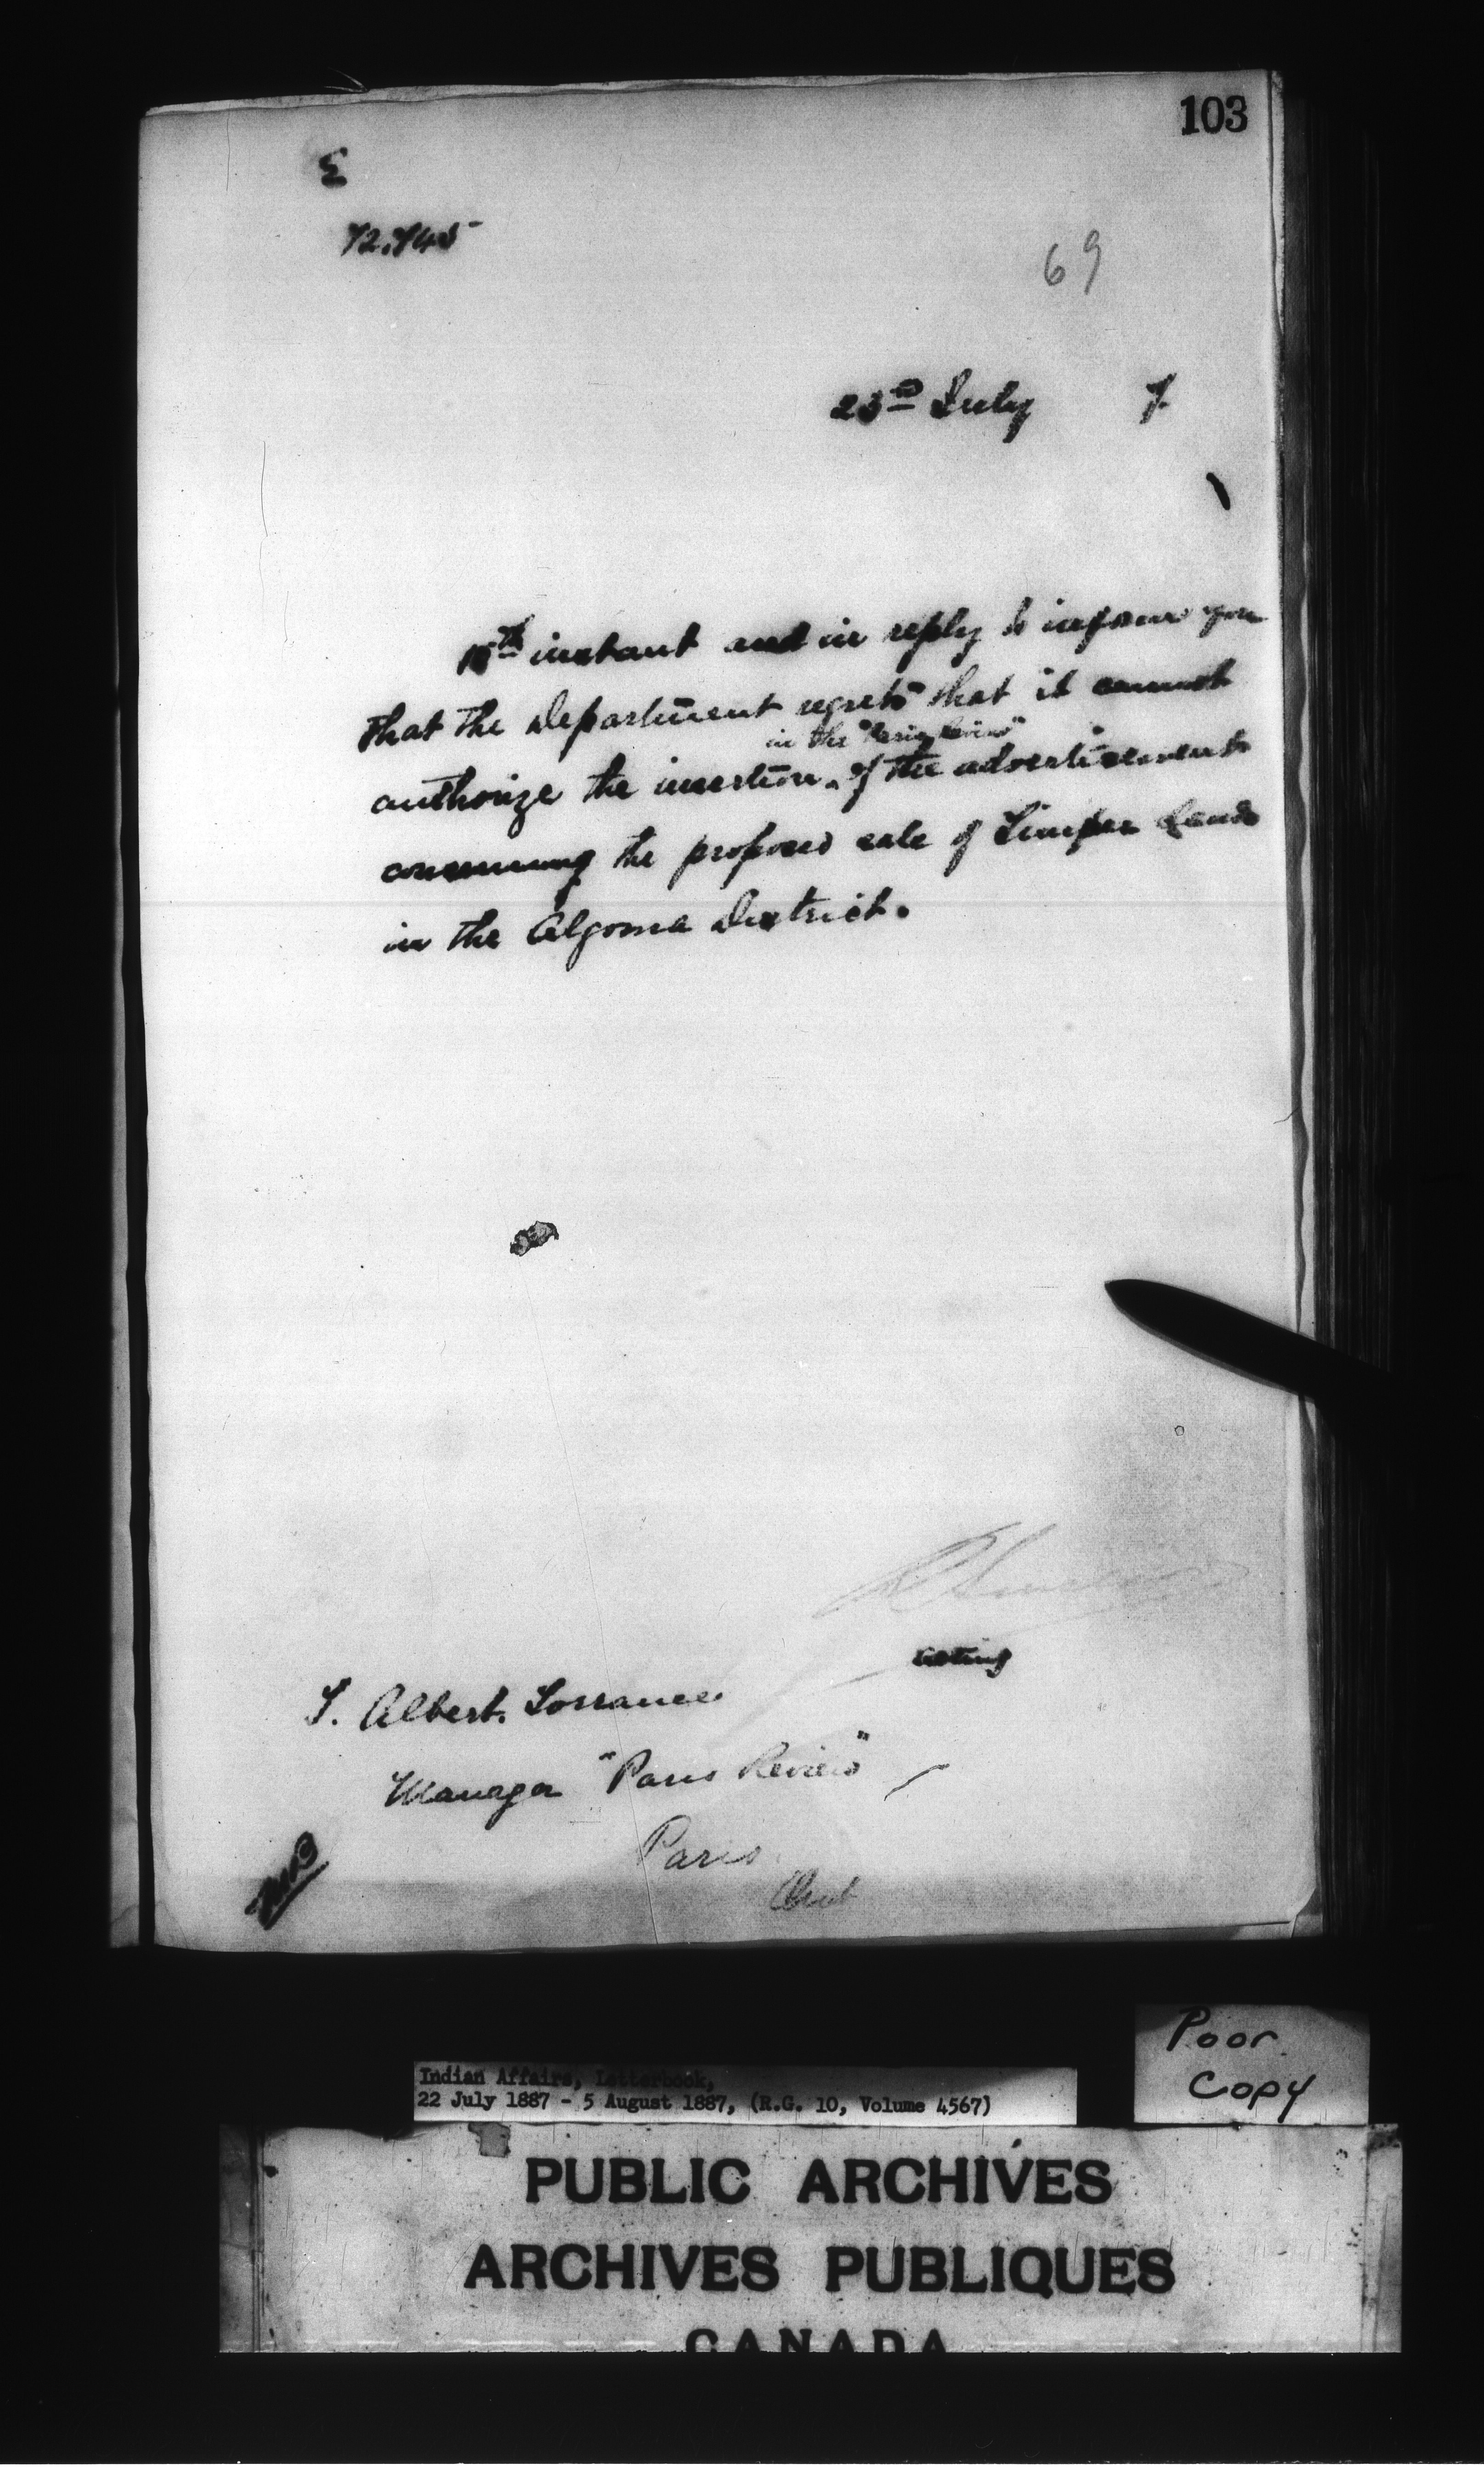 103
E
72.745
69
23rd July 7.
instant and in reply to inform you
that the Department regrets that it cannot
in the "Paris Review"
authorize the insertion of the advertisement
concerning the proposed sale of Timber Lands
in the Algoma District.
Acting
T. Albert. Torrance
Manager "Paris Review"
Paris
Ont
Poor
Copy
Indian Affairs, Letterbook,
22 July 1887 - 5 August 1887, (R.G. 10, Volume 4567)
PUBLIC ARCHIVES
ARCHIVES PUBLIQUES
CANADA